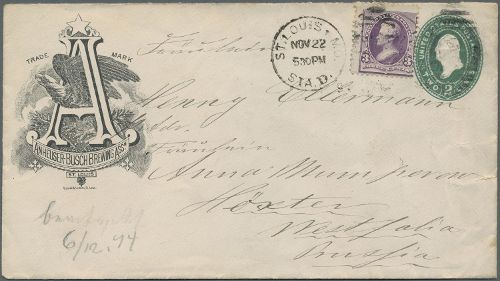 TRADE MARK
A
ANHEUSER-BUSCH BREWING ASS'N
ST. LOUIS
ST. LOUIS, MO.
NOV 22
5 30 PM
STA. D.
3
UNITED STATES
TWO
2
Fräulein
Henny Ellermann
Adr.
Fräulein
Anna
Höxter
Westfalia
Prussia
6/12. 94